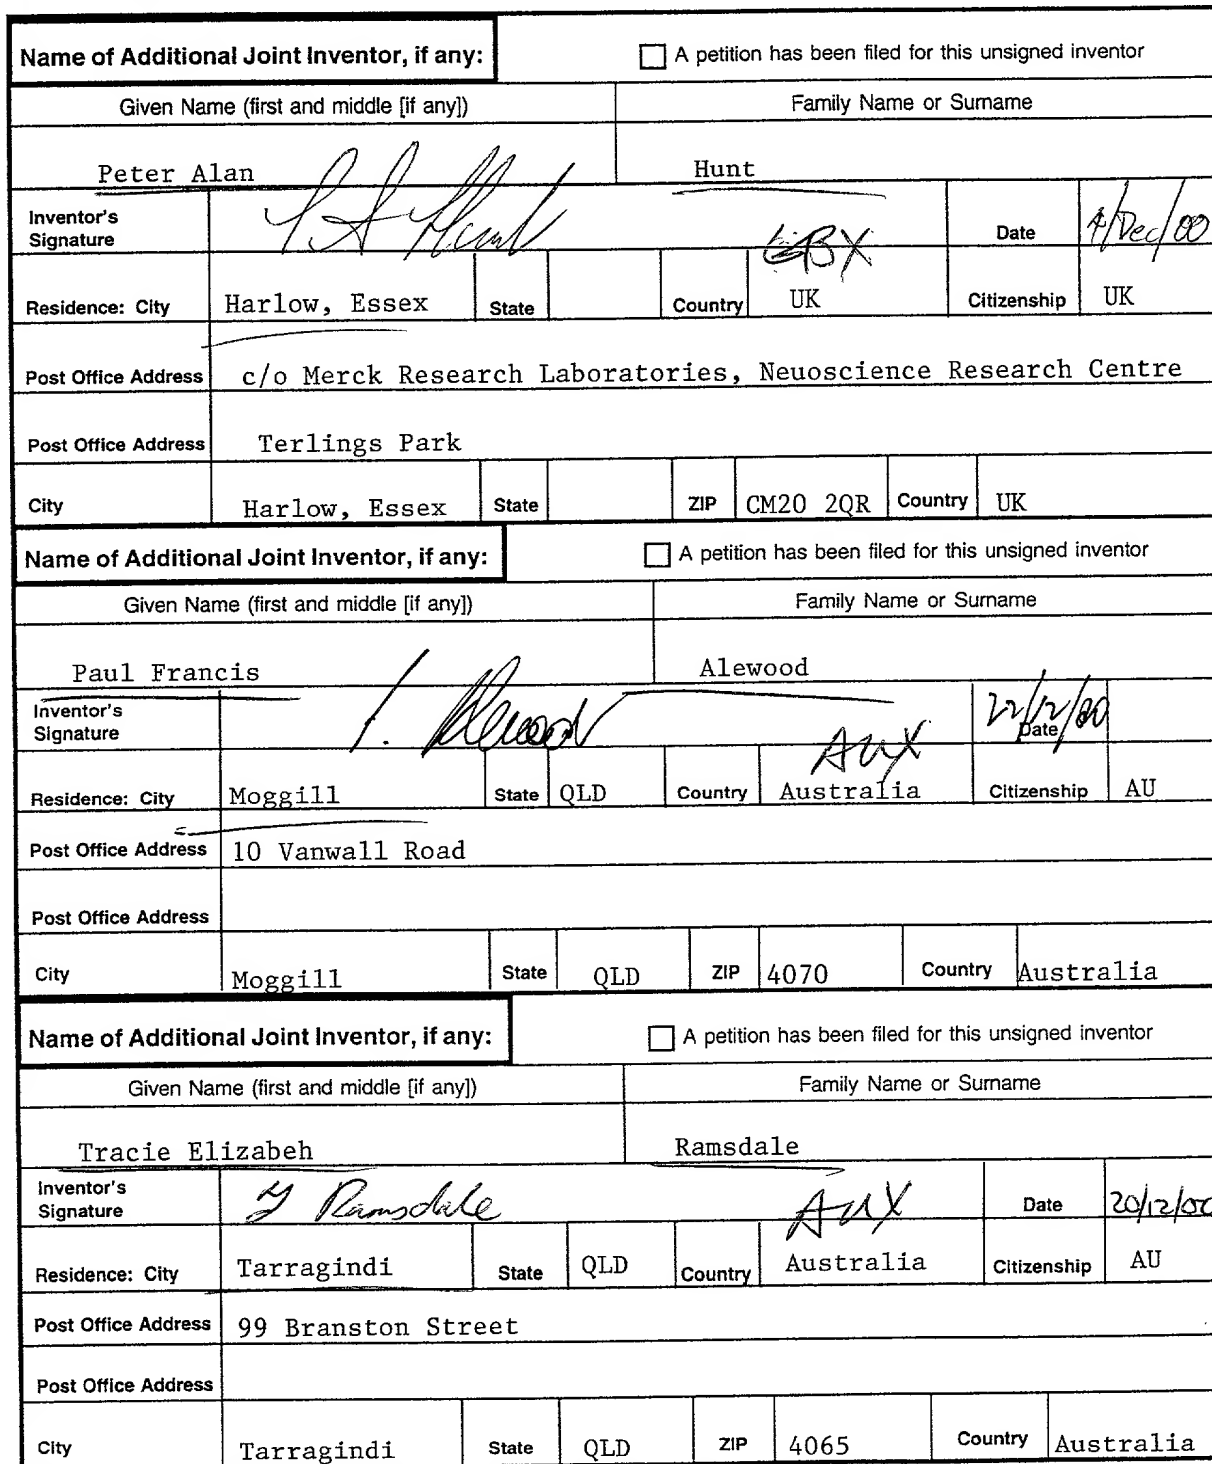 Name of Additional Joint Inventor, if any: A petition has been filed for this unsigned inventor
Given Name (first and middle [if any]) Family Name or Surname
Peter Alan Hunt
Inventor's Signature P A Hunt GBX Date 4/Dec/00
Residence: City Harlow, Essex State Country UK Citizenship UK
Post Office Address c/o Merck Research Laboratories, Neuoscience Research Centre
Post Office Address Terlings Park
City Harlow, Essex State ZIP CM20 2QR Country UK
Name of Additional Joint Inventor, if any: A petition has been filed for this unsigned inventor
Given Name (first and middle [if any]) Family Name or Surname
Paul Francis Alewood
Inventor's Signature P. Alewood AUX Date 22/12/00
Residence: City Moggill State QLD Country Australia Citizenship AU
Post Office Address 10 Vanwall Road
Post Office Address
City Moggill State QLD ZIP 4070 Country Australia
Name of Additional Joint Inventor, if any: A petition has been filed for this unsigned inventor
Given Name (first and middle [if any]) Family Name or Surname
Tracie Elizabeh Ramsdale
Inventor's Signature Ramsdale AUX Date 20/12/00
Residence: City Tarragindi State QLD Country Australia Citizenship AU
Post Office Address 99 Branston Street
Post Office Address
City Tarragindi State QLD ZIP 4065 Country Australia